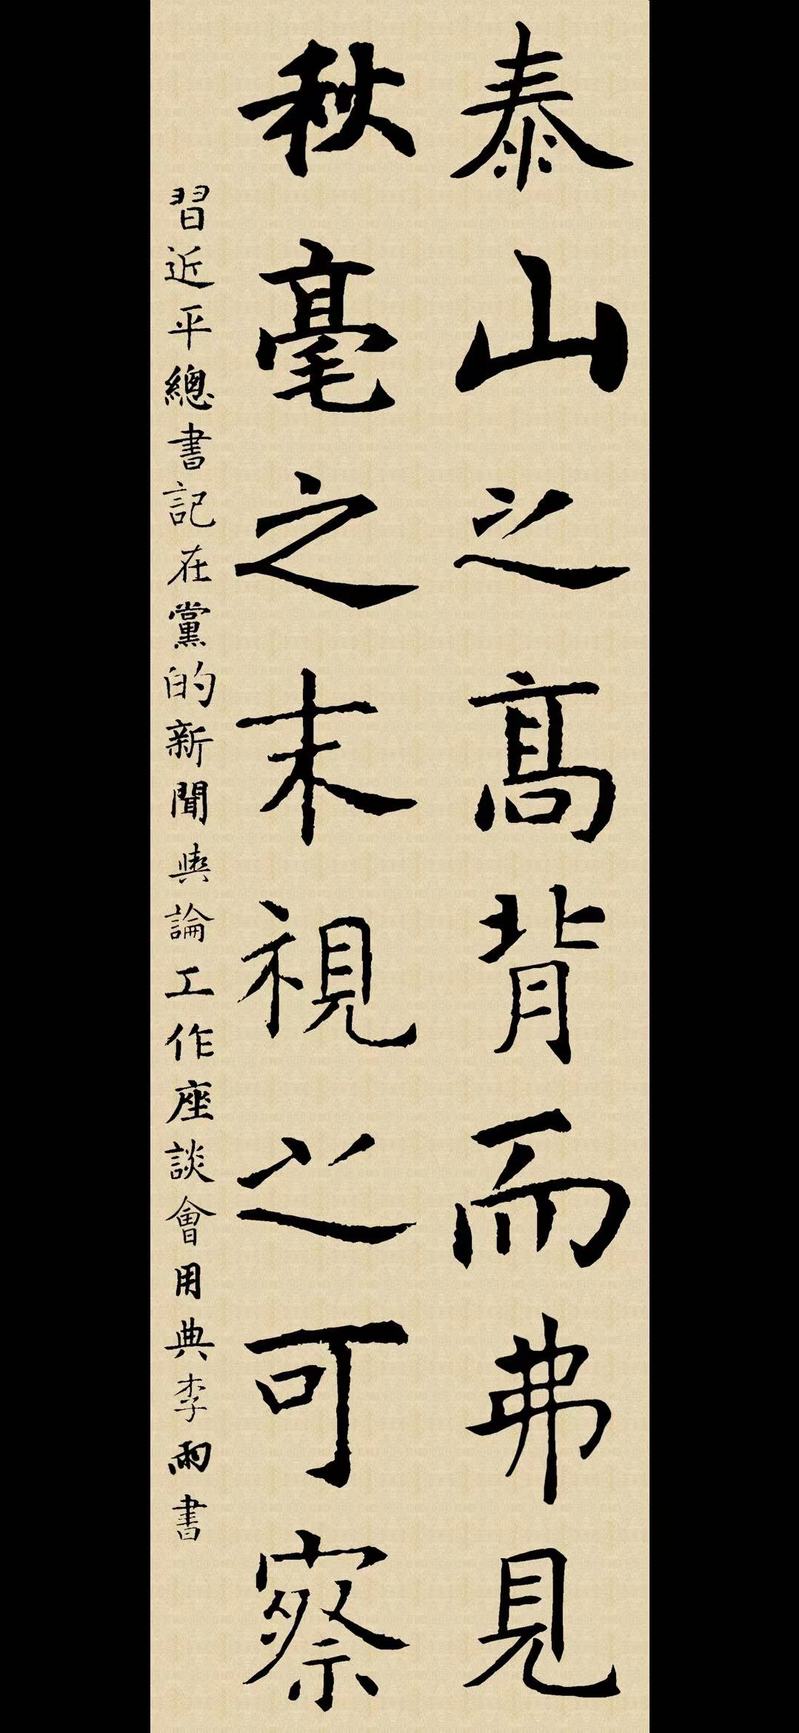 泰山之高背而弗見
秋毫之末視之可察
習近平總書記在黨的新聞輿論工作座談會用典李雨書